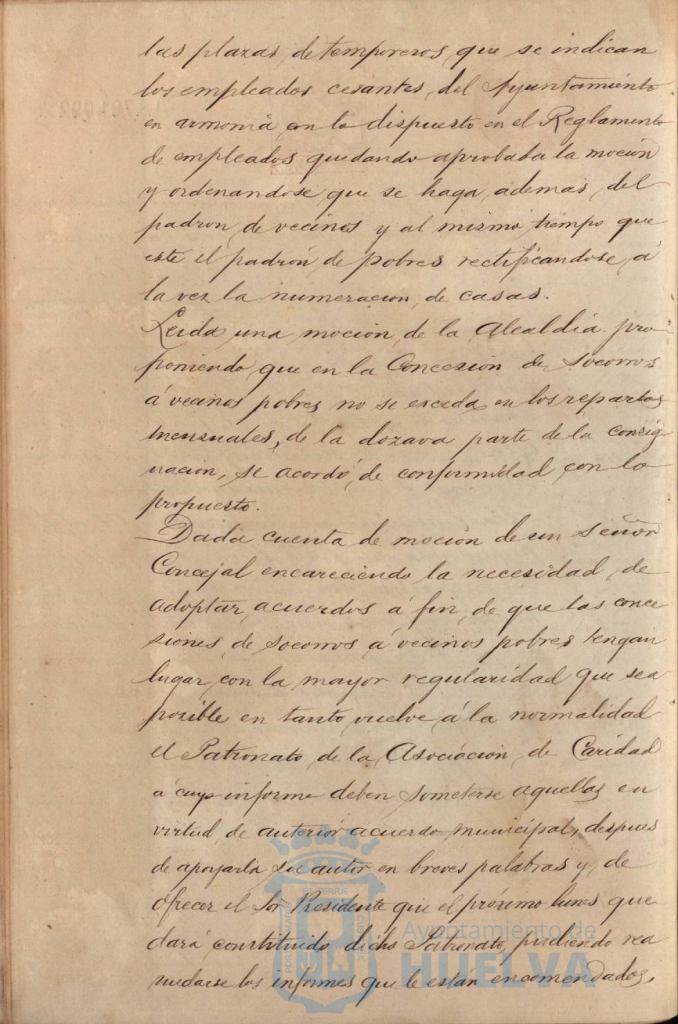 las plazas de temporeros que se indican
los empleados cesantes del Ayuntamiento
en armonia con lo dispuesto en el Reglamento
de empleados quedando aprobada la moción
y ordenandose que se haga ademas del
padron de vecinos y al mismo tiempo que
este el padrón de pobres rectificandose á
la vez la numeracion de casas.
Leida una moción de la Alcaldia pro-
poniendo que en la Concesión de Socorros
á vecinos pobres no se exceda en los repartos
mensuales, de la dozava parte de la consig
nacion, se acordó de conformidad con lo
propuesto.
Dada cuenta de moción de un Señor
Concejal encareciendo la necesidad de
adoptar acuerdos á fin de que las conce
siones de socorros á vecinos pobres tengan
lugar con la mayor regularidad que sea
posible en tanto vuelve á la normalidad
el Patronato de la Asociación de Caridad
á cuyo informe deben someterse aquellas en
virtud de anterior acuerdo municipal, despues
de apoyarla su autor en breves palabras y de
ofrecer el Sor Presidente que el próximo lunes que
dará constituido dicho Patronato, pudiendo rea
nudarse los informes que le están encomendados,
Ayuntamiento de
HUELVA